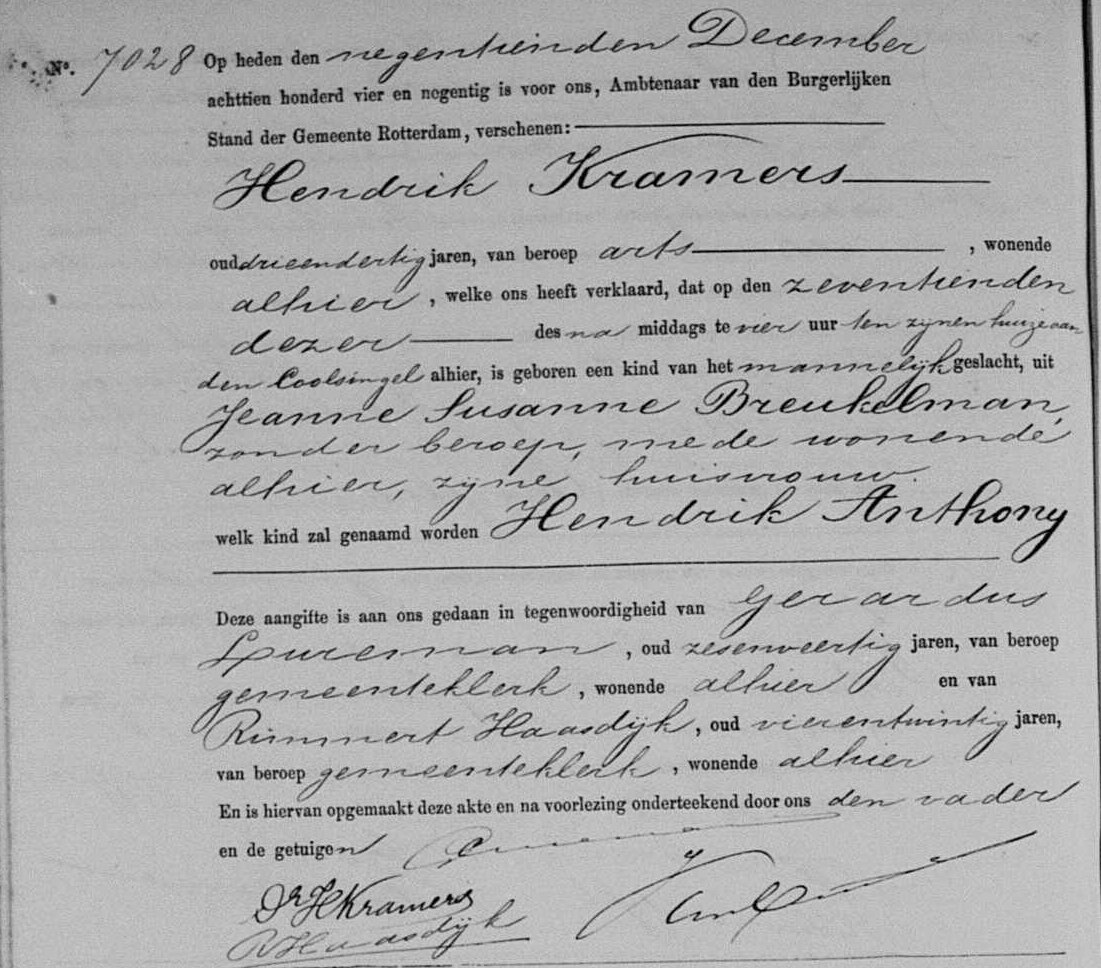 No. 7028 Op heden den negentienden December
achttien honderd vier en negentig is voor ons, Ambtenaar van den Burgerlijken
Stand der Gemeente Rotterdam, verschenen:
Hendrik Kramers
oud drieendertig jaren, van beroep arts, wonende
alhier, welke ons heeft verklaard, dat op den zeventienden
dezer des na middags te vier uur ten zijnen huize aan
den Coolsingel alhier, is geboren een kind van het mannelijk geslacht, uit
Jeanne Susanne Breukelman,
zonder beroep, mede wonende
alhier, zijne huisvrouw.
welk kind zal genaamd worden Hendrik Anthony
Deze aangifte is aan ons gedaan in tegenwoordigheid van Gerardus
, oud zesenveertig jaren, van beroep
gemeenteklerk, wonende alhier en van
Rimmert Haasdijk, oud vierentwintig jaren,
van beroep gemeenteklerk, wonende alhier
En is hiervan opgemaakt deze akte en na voorlezing onderteekend door ons den vader
en de getuigen
Dr H Kramers
R Haasdijk